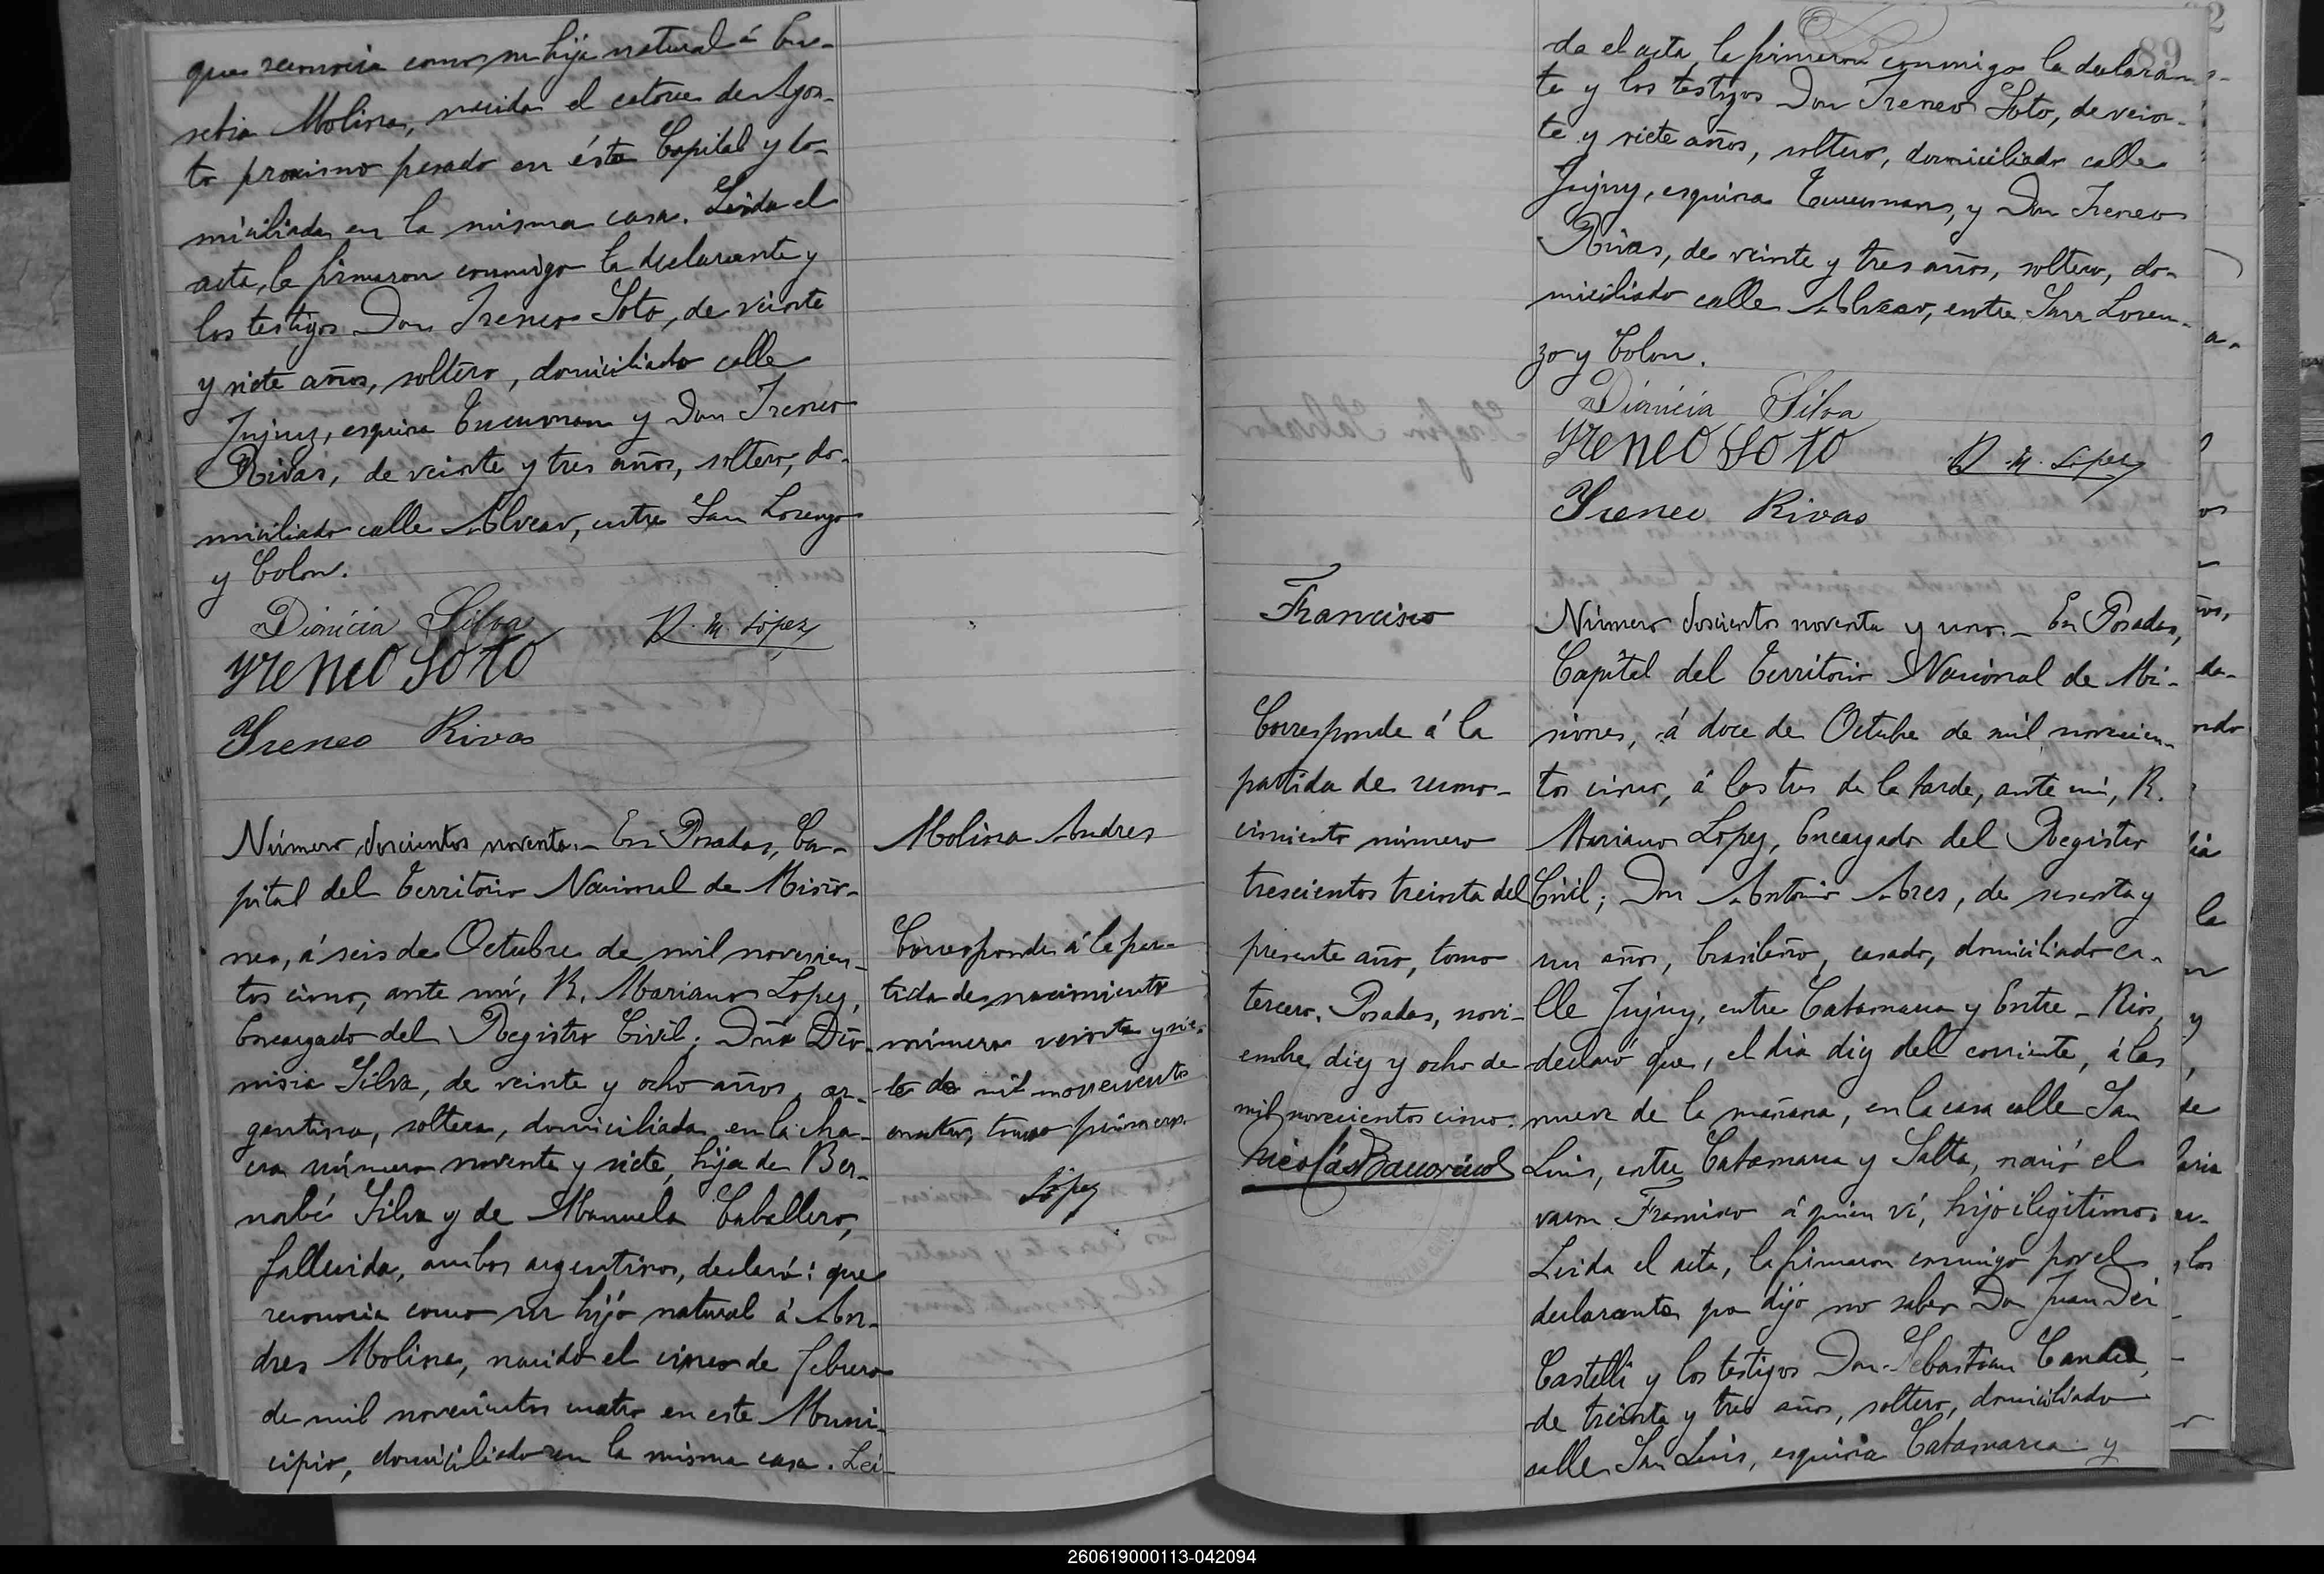 que reconocia como su hija natural á Eu-
sebia Molina, nacida el catorce de Agos-
to proximo pasado en ésta Capital y do-
miciliada en la misma casa. Leida el
acta, la firmaron conmigo la declarante y
los testigos Don Ireneo Soto, de veinte
y siete años, soltero, domiciliado calle
Jujuy, esquina Tucuman y Don Ireneo
Rivas, de veinte y tres años, soltero, do-
miciliado calle Alvear, entre San Lorenzo
y Colon.
Dionicia Silva
R. M. López
Yreneo Soto
Yreneo Rivas
Número doscientos noventa.- En Posadas, Ca-
pital del Territorio Nacional de Misio-
nes, á seis de Octubre de mil novecien-
tos cinco, ante mí, R. Mariano Lopez,
Encargado del Registro Civil; Doña Dio-
nisia Silva, de veinte y ocho años, ar-
gentina, soltera, domiciliada en la cha-
cra número noventa y siete, hija de Ber-
nabé Silva y de Manuela Caballero,
fallecida, ambos argentinos, declaró: que
reconocia como su hijo natural á An-
dres Molina, nacido el cinco de febrero
de mil novecientos cuatro en este Muni-
cipio, domiciliado en la misma casa. Lei-
Molina Andres
Corresponde á la par-
tida de nacimiento
número veinte y sie-
te de mil novecientos
cuatro, tomo primero.
López
89
da el acta, la firmaron conmigo la declaran-
te y los testigos Don Ireneo Soto, de vein-
te y siete años, soltero, domiciliado calle
Jujuy, esquina Tucuman, y Don Ireneo
Rivas, de veinte y tres años, soltero, do-
miciliado calle Alvear, entre San Loren-
zo y Colon.
Dionicia Silva
Yreneo Soto
R. M. López
Yreneo Rivas
Francisco
Corresponde á la
partida de recono-
cimiento número
trescientos treinta del
presente año, tomo
tercero. Posadas, novi-
embre diez y ocho de
mil novecientos cinco.
Nicolás
Número doscientos noventa y uno.- En Posadas,
Capital del Territorio Nacional de Mi-
siones, á doce de Octubre de mil novecien-
tos cinco, á las tres de la tarde, ante mí, R.
Mariano Lopez, Encargado del Registro
Civil; Don Antonio Ares, de sesenta y
un años, brasileño, casado, domiciliado ca-
lle Jujuy, entre Catamarca y Entre-Rios,
declaró que, el dia diez del corriente, á las
nueve de la mañana, en la casa calle San
Luis, entre Catamarca y Salta, nació el
varon Francisco á quien ví, hijo ilegitimo.
Leida el acta, la firmaron conmigo por el
declarante que dijo no saber Don Juan Dei
Castelli y los testigos Don Sebastian Candia,
de treinta y tres años, soltero, domiciliado
calle San Luis, esquina Catamarca y
260619000113-042094